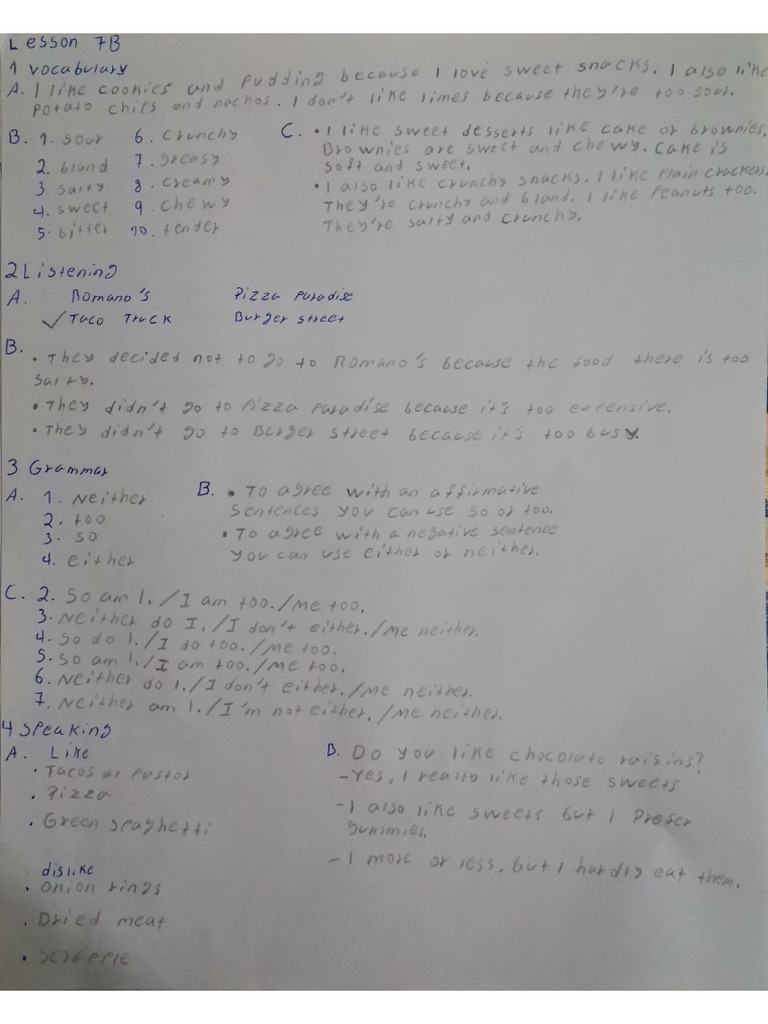 Lesson 7B
1 vocabulary
A. I like cookies and pudding because I love sweet snacks. I also like
potato chips and nachos. I don't like limes because they're too sour.
B. 1. sour 6. crunchy
2. bland 7. greasy
3. salty 8. creamy
4. sweet 9. chewy
5. bitter 10. tender
C. • I like sweet desserts like cake or brownies.
Brownies are sweet and chewy. Cake is
soft and sweet.
• I also like crunchy snacks. I like plain crackers.
They're crunchy and bland. I like peanuts too.
They're salty and crunchy.
2 Listening
A. Romano's Pizza Paradise
✓ Taco Truck Burger street
B.
• They decided not to go to Romano's because the food there is too
salty.
• They didn't go to Pizza Paradise because it's too expensive.
• They didn't go to Burger street because it's too busy.
3 Grammar
A. 1. Neither
2. too
3. so
4. either
B. • To agree with an affirmative
sentences you can use so or too.
• To agree with a negative sentence
you can use either or neither.
C. 2. So am I./I am too./me too.
3. Neither do I./I don't either./me neither.
4. So do I./I do too./me too.
5. So am I./I am too./me too.
6. Neither do I./I don't either./me neither.
7. Neither am I./I'm not either./me neither.
4 Speaking
A. Like
• Tacos al Pastor
• Pizza
• Green spaghetti
dislike
• Onion rings
• Dried meat
• Scrapple
B. Do you like chocolate raisins?
-Yes, I really like those sweets
-I also like sweets but I Prefer
gummies.
-I more or less, but I hardly eat them.